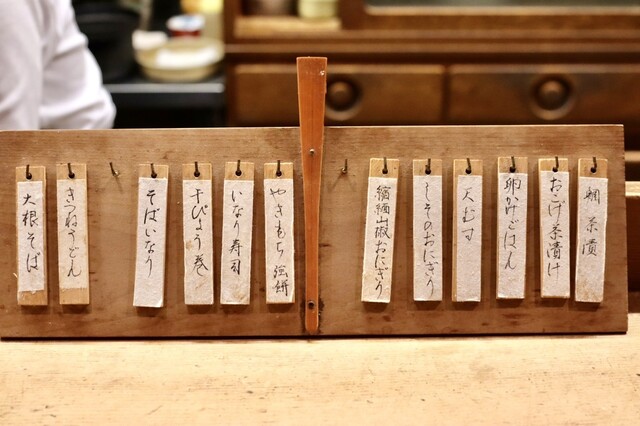 鯛茶漬
おこげ茶漬け
卵かけごはん
天むす
しそのおにぎり
縮緬山椒おにぎり
やきもち 強餅
いなり寿司
干ぴょう巻
そばいなり
きねうどん
大根そば